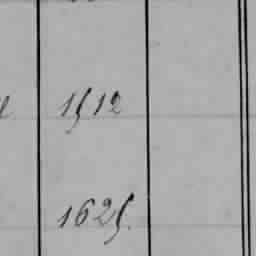 1512
1625.